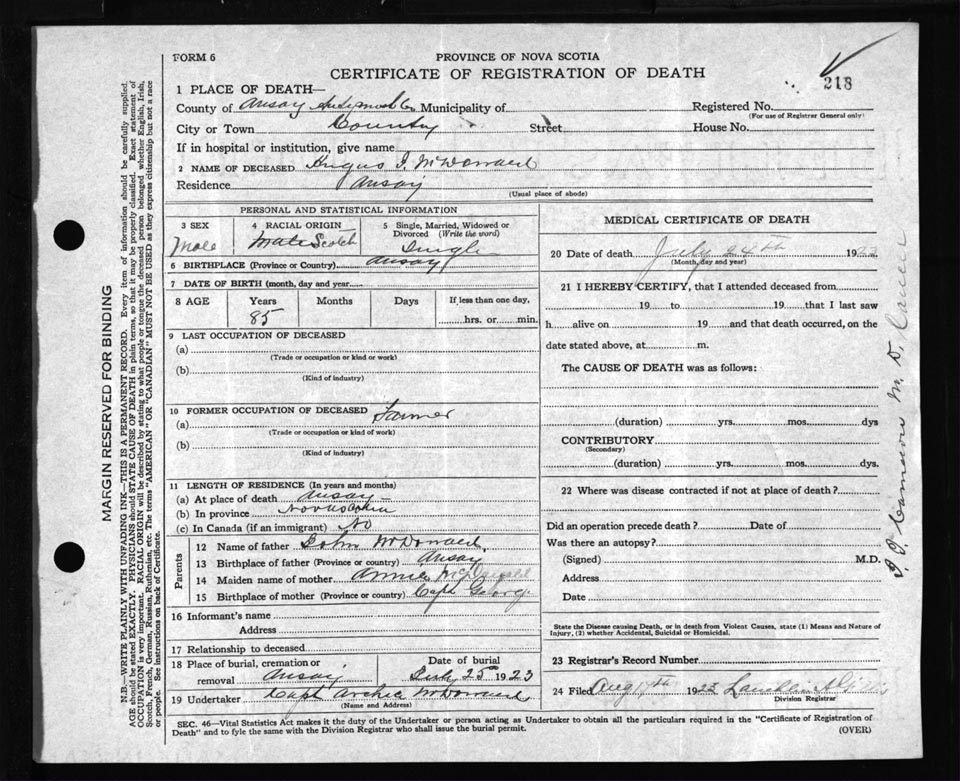 FORM 6
PROVINCE OF NOVA SCOTIA
CERTIFICATE OF REGISTRATION OF DEATH
218
1 PLACE OF DEATH—
County of Municipality of
Registered No.
(For use of Registrar General only)
City or Town Country Street House No.
If in hospital or institution, give name
2 NAME OF DECEASED Angus J. McDonald
Residence
(Usual place of abode)
PERSONAL AND STATISTICAL INFORMATION
3 SEX
Male
4 RACIAL ORIGIN
Scotch
5 Single, Married, Widowed or Divorced (Write the word)
Single
6 BIRTHPLACE (Province or Country)
7 DATE OF BIRTH (month, day and year)
8 AGE
Years
85
Months
Days
If less than one day,
hrs. or min.
9 LAST OCCUPATION OF DECEASED
(a)
(Trade or occupation or kind or work)
(b)
(Kind of industry)
10 FORMER OCCUPATION OF DECEASED Farmer
(a)
(Trade or occupation or kind of work)
(b)
(Kind of industry)
11 LENGTH OF RESIDENCE (In years and months)
(a) At place of death
(b) In province Nova Scotia
(c) In Canada (if an immigrant) No
Parents
12 Name of father John McDonald
13 Birthplace of father (Province or country)
14 Maiden name of mother Annie
15 Birthplace of mother (Province or country) Cape George
16 Informant's name
Address
17 Relationship to deceased
18 Place of burial, cremation or removal
Date of burial
July 25 1923
19 Undertaker Capt Archie McDonald
(Name and Address)
MEDICAL CERTIFICATE OF DEATH
20 Date of death July 24th 1923
(Month, day and year)
21 I HEREBY CERTIFY, that I attended deceased from
19 to 19 that I last saw
h alive on 19 and that death occurred, on the
date stated above, at m.
The CAUSE OF DEATH was as follows:
(duration) yrs. mos. dys
CONTRIBUTORY
(Secondary)
(duration) yrs. mos. dys.
22 Where was disease contracted if not at place of death?
Did an operation precede death? Date of
Was there an autopsy?
(Signed) M.D.
Address
Date
State the Disease causing Death, or in death from Violent Causes, state (1) Means and Nature of
Injury, (2) whether Accidental, Suicidal or Homicidal.
23 Registrar's Record Number
24 Filed Aug 1923
Division Registrar
SEC. 46—Vital Statistics Act makes it the duty of the Undertaker or person acting as Undertaker to obtain all the particulars required in the "Certificate of Registration of
Death" and to fyle the same with the Division Registrar who shall issue the burial permit.
(OVER)
MARGIN RESERVED FOR BINDING
N.B.—WRITE PLAINLY WITH UNFADING INK—THIS IS A PERMANENT RECORD. Every item of information should be carefully supplied.
AGE should be stated EXACTLY. PHYSICIANS should STATE CAUSE OF DEATH in plain terms, so that it may be properly classified. Exact statement of
OCCUPATION is very important. RACIAL ORIGIN will be described by stating to what people or tongue the deceased person belonged whether English, Irish,
Scotch, French, German, Russian, Ruthenian, etc. The terms "AMERICAN" OR "CANADIAN" MUST NOT BE USED as they express citizenship but not a race
or people. See instructions on back of Certificate.
Cameron M. D.